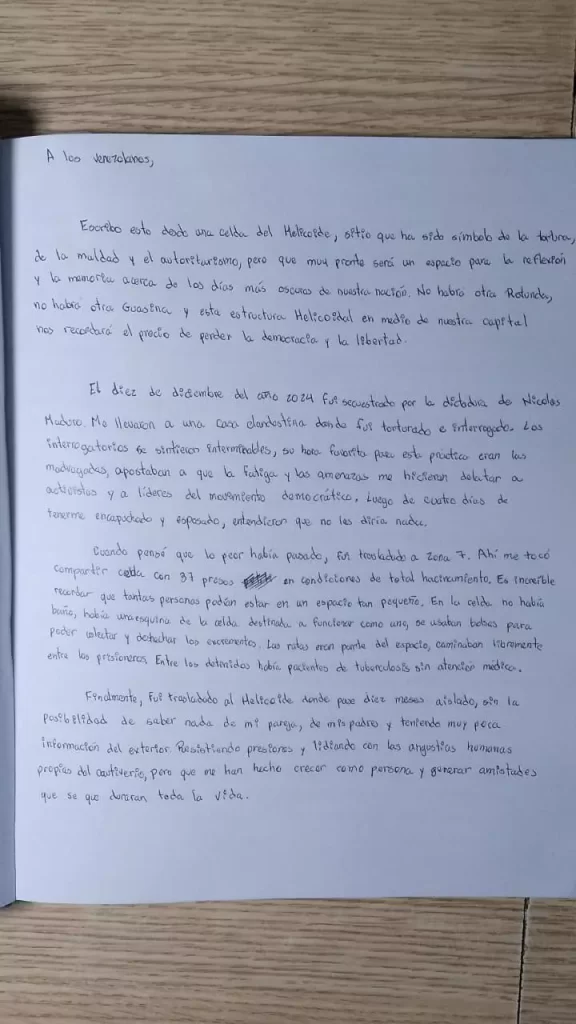 A los venezolanos,
Escribo esto desde una celda del Helicoide, sitio que ha sido símbolo de la tortura,
de la maldad y el autoritarismo, pero que muy pronto será un espacio para la reflexión
y la memoria acerca de los días más oscuros de nuestra nación. No habrá otra Rotunda,
no habrá otra Guasina y esta estructura Helicoidal en medio de nuestra capital
nos recordará el precio de perder la democracia y la libertad.
El diez de diciembre del año 2024 fui secuestrado por la dictadura de Nicolas
Maduro. Me llevaron a una casa clandestina donde fui torturado e interrogado. Los
interrogatorios se sintieron interminables, su hora favorita para esta práctica eran las
madrugadas, apostaban a que la fatiga y las amenazas me hicieran delatar a
activistas y a líderes del movimiento democrático. Luego de cuatro días de
tenerme encapuchado y esposado, entendieron que no les diría nada.
Cuando pensé que lo peor había pasado, fui trasladado a Zona 7. Ahí me tocó
compartir celda con 37 presos en condiciones de total hacinamiento. Es increíble
recordar que tantas personas podían estar en un espacio tan pequeño. En la celda no había
baño, había una esquina de la celda destinada a funcionar como uno, se usaban bolsas para
poder colectar y desechar los excrementos. Las ratas eran parte del espacio, caminaban libremente
entre los prisioneros. Entre los detenidos había pacientes de tuberculosis sin atención médica.
Finalmente, fui trasladado al Helicoide donde pase diez meses aislado, sin la
posibilidad de saber nada de mi pareja, de mis padres y teniendo muy poca
información del exterior. Resistiendo presiones y lidiando con las angustias humanas
propias del cautiverio, pero que me han hecho crecer como persona y generar amistades
que se que duraran toda la vida.